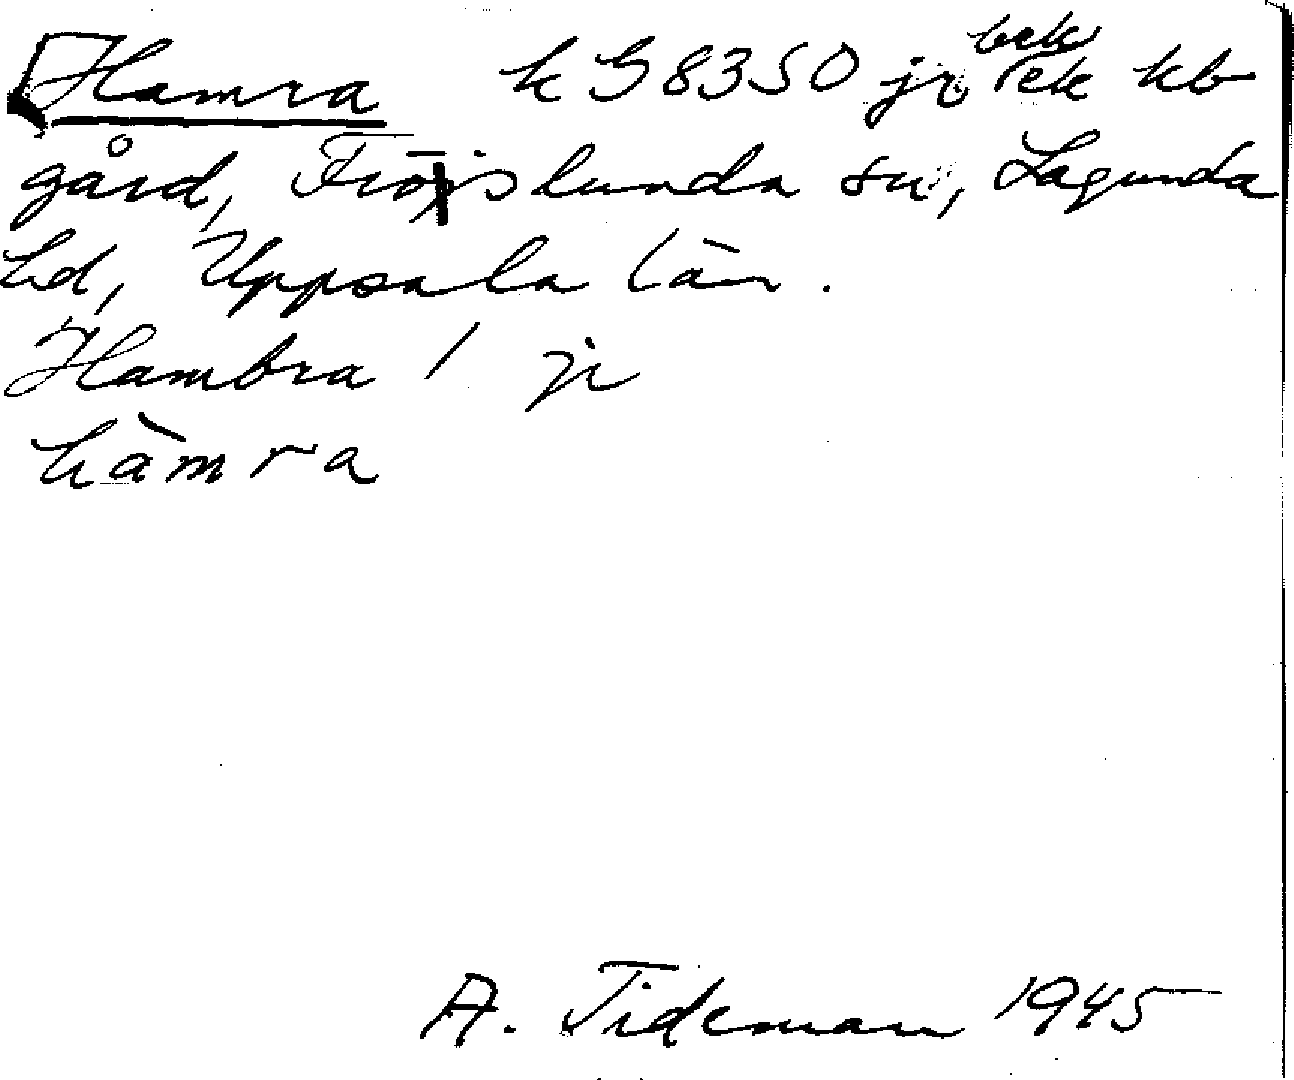 Hamra k G 8350 jr bek rek kb
gård, Fröslunda sn, Lagunda
hd, Uppsala län.
Hambra / jr
hàmra
A. Tideman 1945